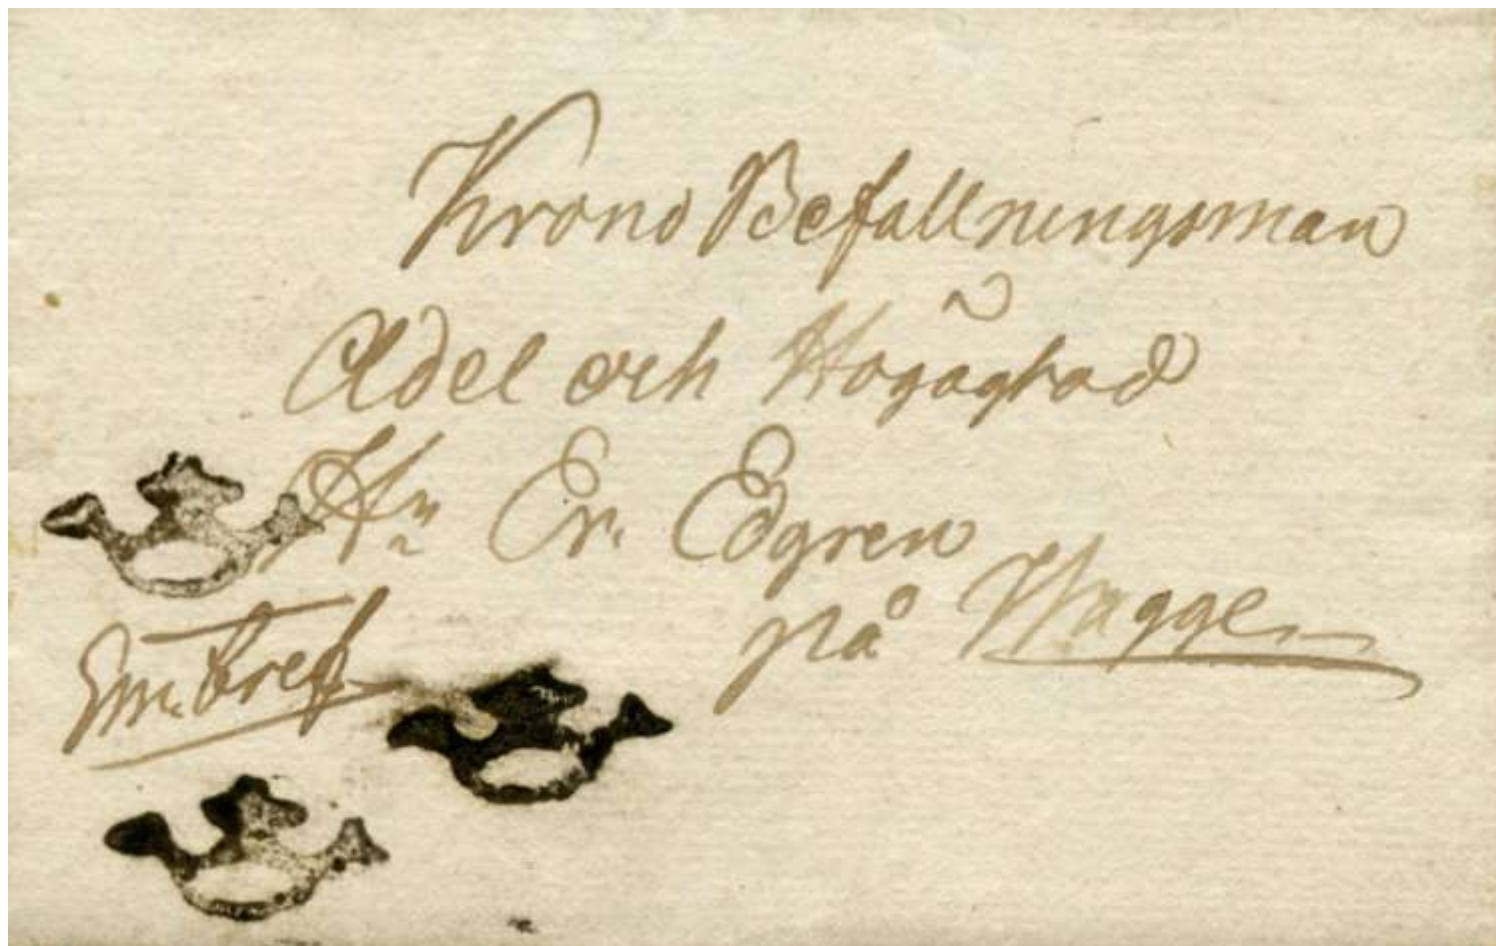 Krono Befallningsman
Adel och Högägtad
Hr Er. Edgren
på Wagge
Em. bref